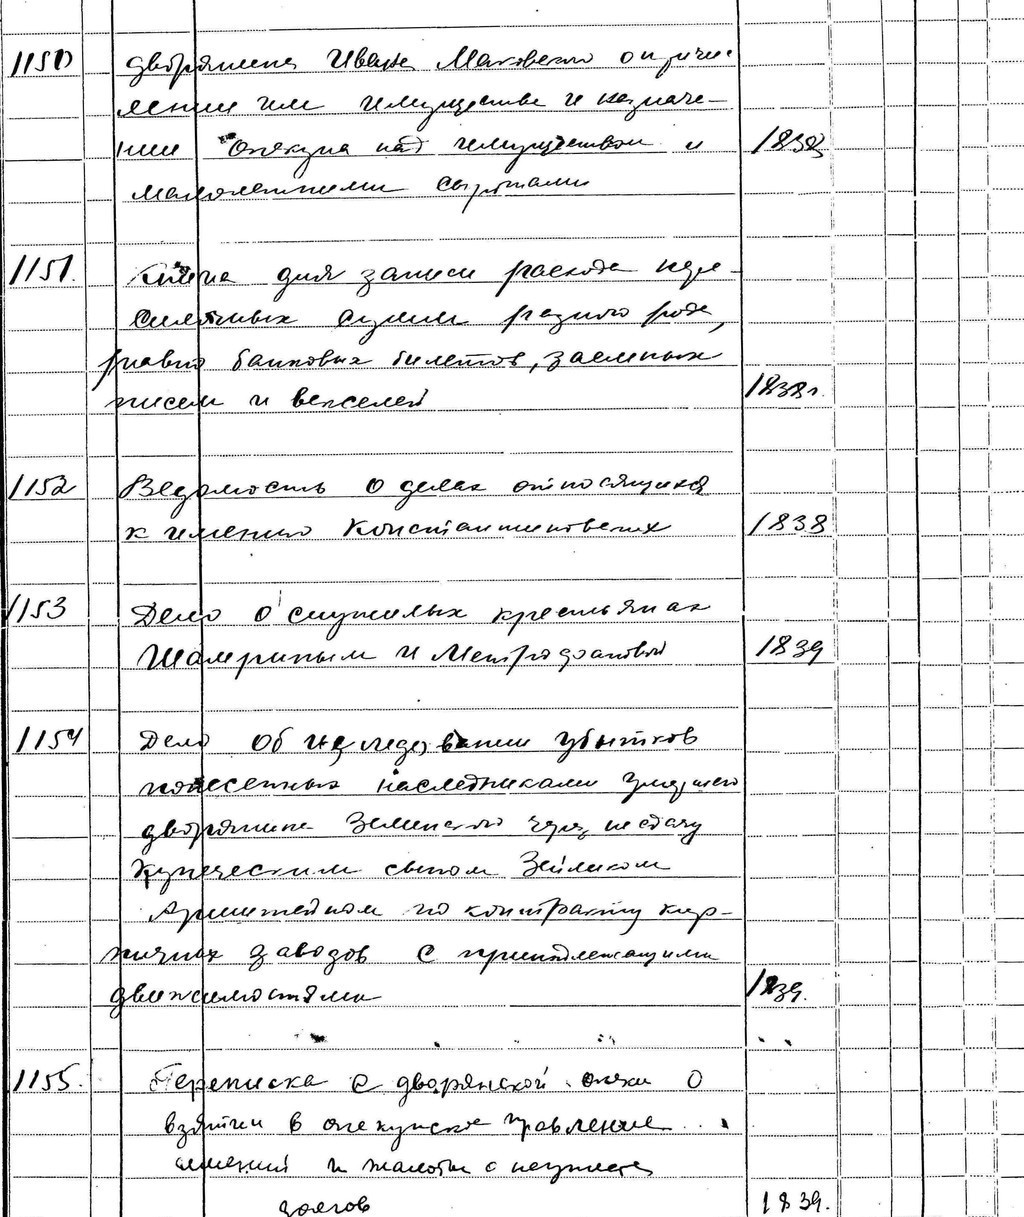 1150 дворянина Ивана Маковского о
имуществе и назначе-
нии опекуна над имуществом и 1838
малолетними сиротами
1151. Книга для записи расхода пере-
сумм разного рода,
равно банковых билетов, заемных
писем и векселей 1838г.
1152 Ведомость о делах относящихся
к имению Константиновских 1838
1153 Дело о служилых крестьянах
и 1839
1154 Дело об убытков
понесенных наследниками умершего
дворянина Земинского через несдачу
купеческим сыном Зейликом
по контракту кир-
пичных заводов с принадлежащими
движимостями 1839.
1155. Переписка с дворянской опеки о
взятии в опекунское правление
имений и жалобы о неуплате
долгов 1839.